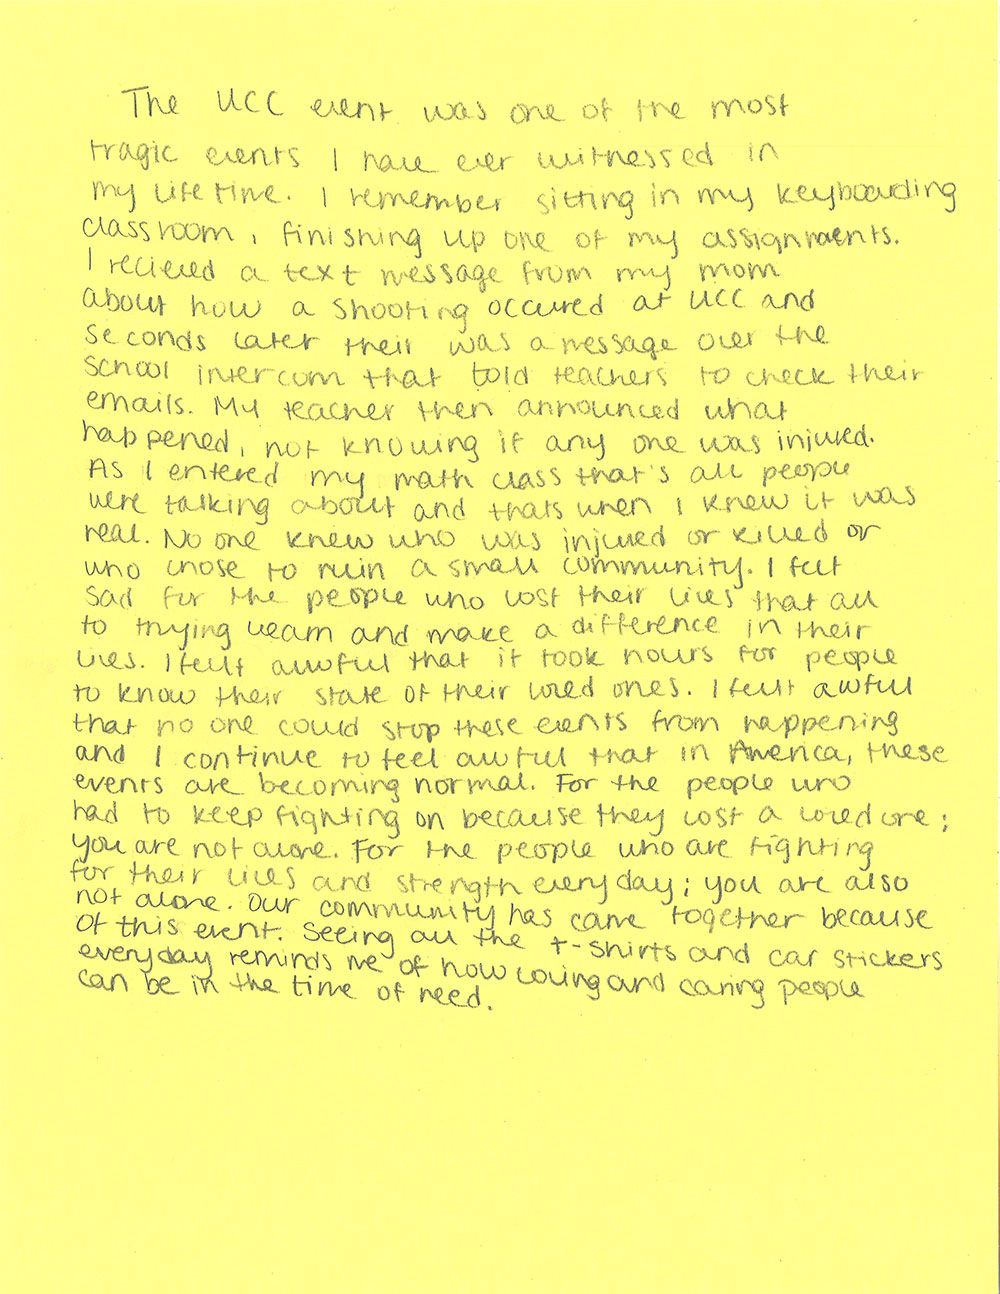 The UCC event was one of the most
tragic events I have ever witnessed in
my lifetime. I remember sitting in my keyboarding
classroom, finishing up one of my assignments.
I recieved a text message from my mom
about how a shooting occured at UCC and
seconds later their was a message over the
school intercom that told teachers to check their
emails. My teacher then announced what
happened, not knowing if any one was injured.
As I entered my math class that's all people
were talking about and thats when I knew it was
real. No one knew who was injured or killed or
who chose to ruin a small community. I felt
sad for the people who lost their lives that all
to trying learn and make a difference in their
lives. I felt awful that it took hours for people
to know their state of their loved ones. I felt awful
that no one could stop these events from happening
and I continue to feel awful that in America, these
events are becoming normal. For the people who
had to keep fighting on because they lost a loved one;
you are not alone. For the people who are fighting
for their lives and strength everyday; you are also
not alone. Our community has came together because
of this event. Seeing all the t-shirts and car stickers
everyday reminds me of how loving and caring people
can be in the time of need.